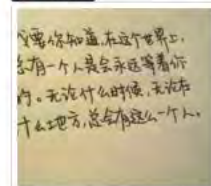 我要你知道，在这个世界上，
总有一个人是会永远等着你
的。无论什么时候，无论在
什么地方，总会有这么一个人。